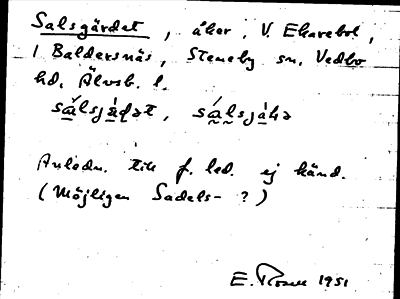 Salsgärdet, åker, V. Ekarebol,
1 Baldersnäs, Steneby sn, Vedbo
hd. Älvsb. l.
sálsjäḍət, sálsjáḥə
Anledn. till f. led. ej känd.
(Möjligen Sadels- ?)
E. Rosell 1951